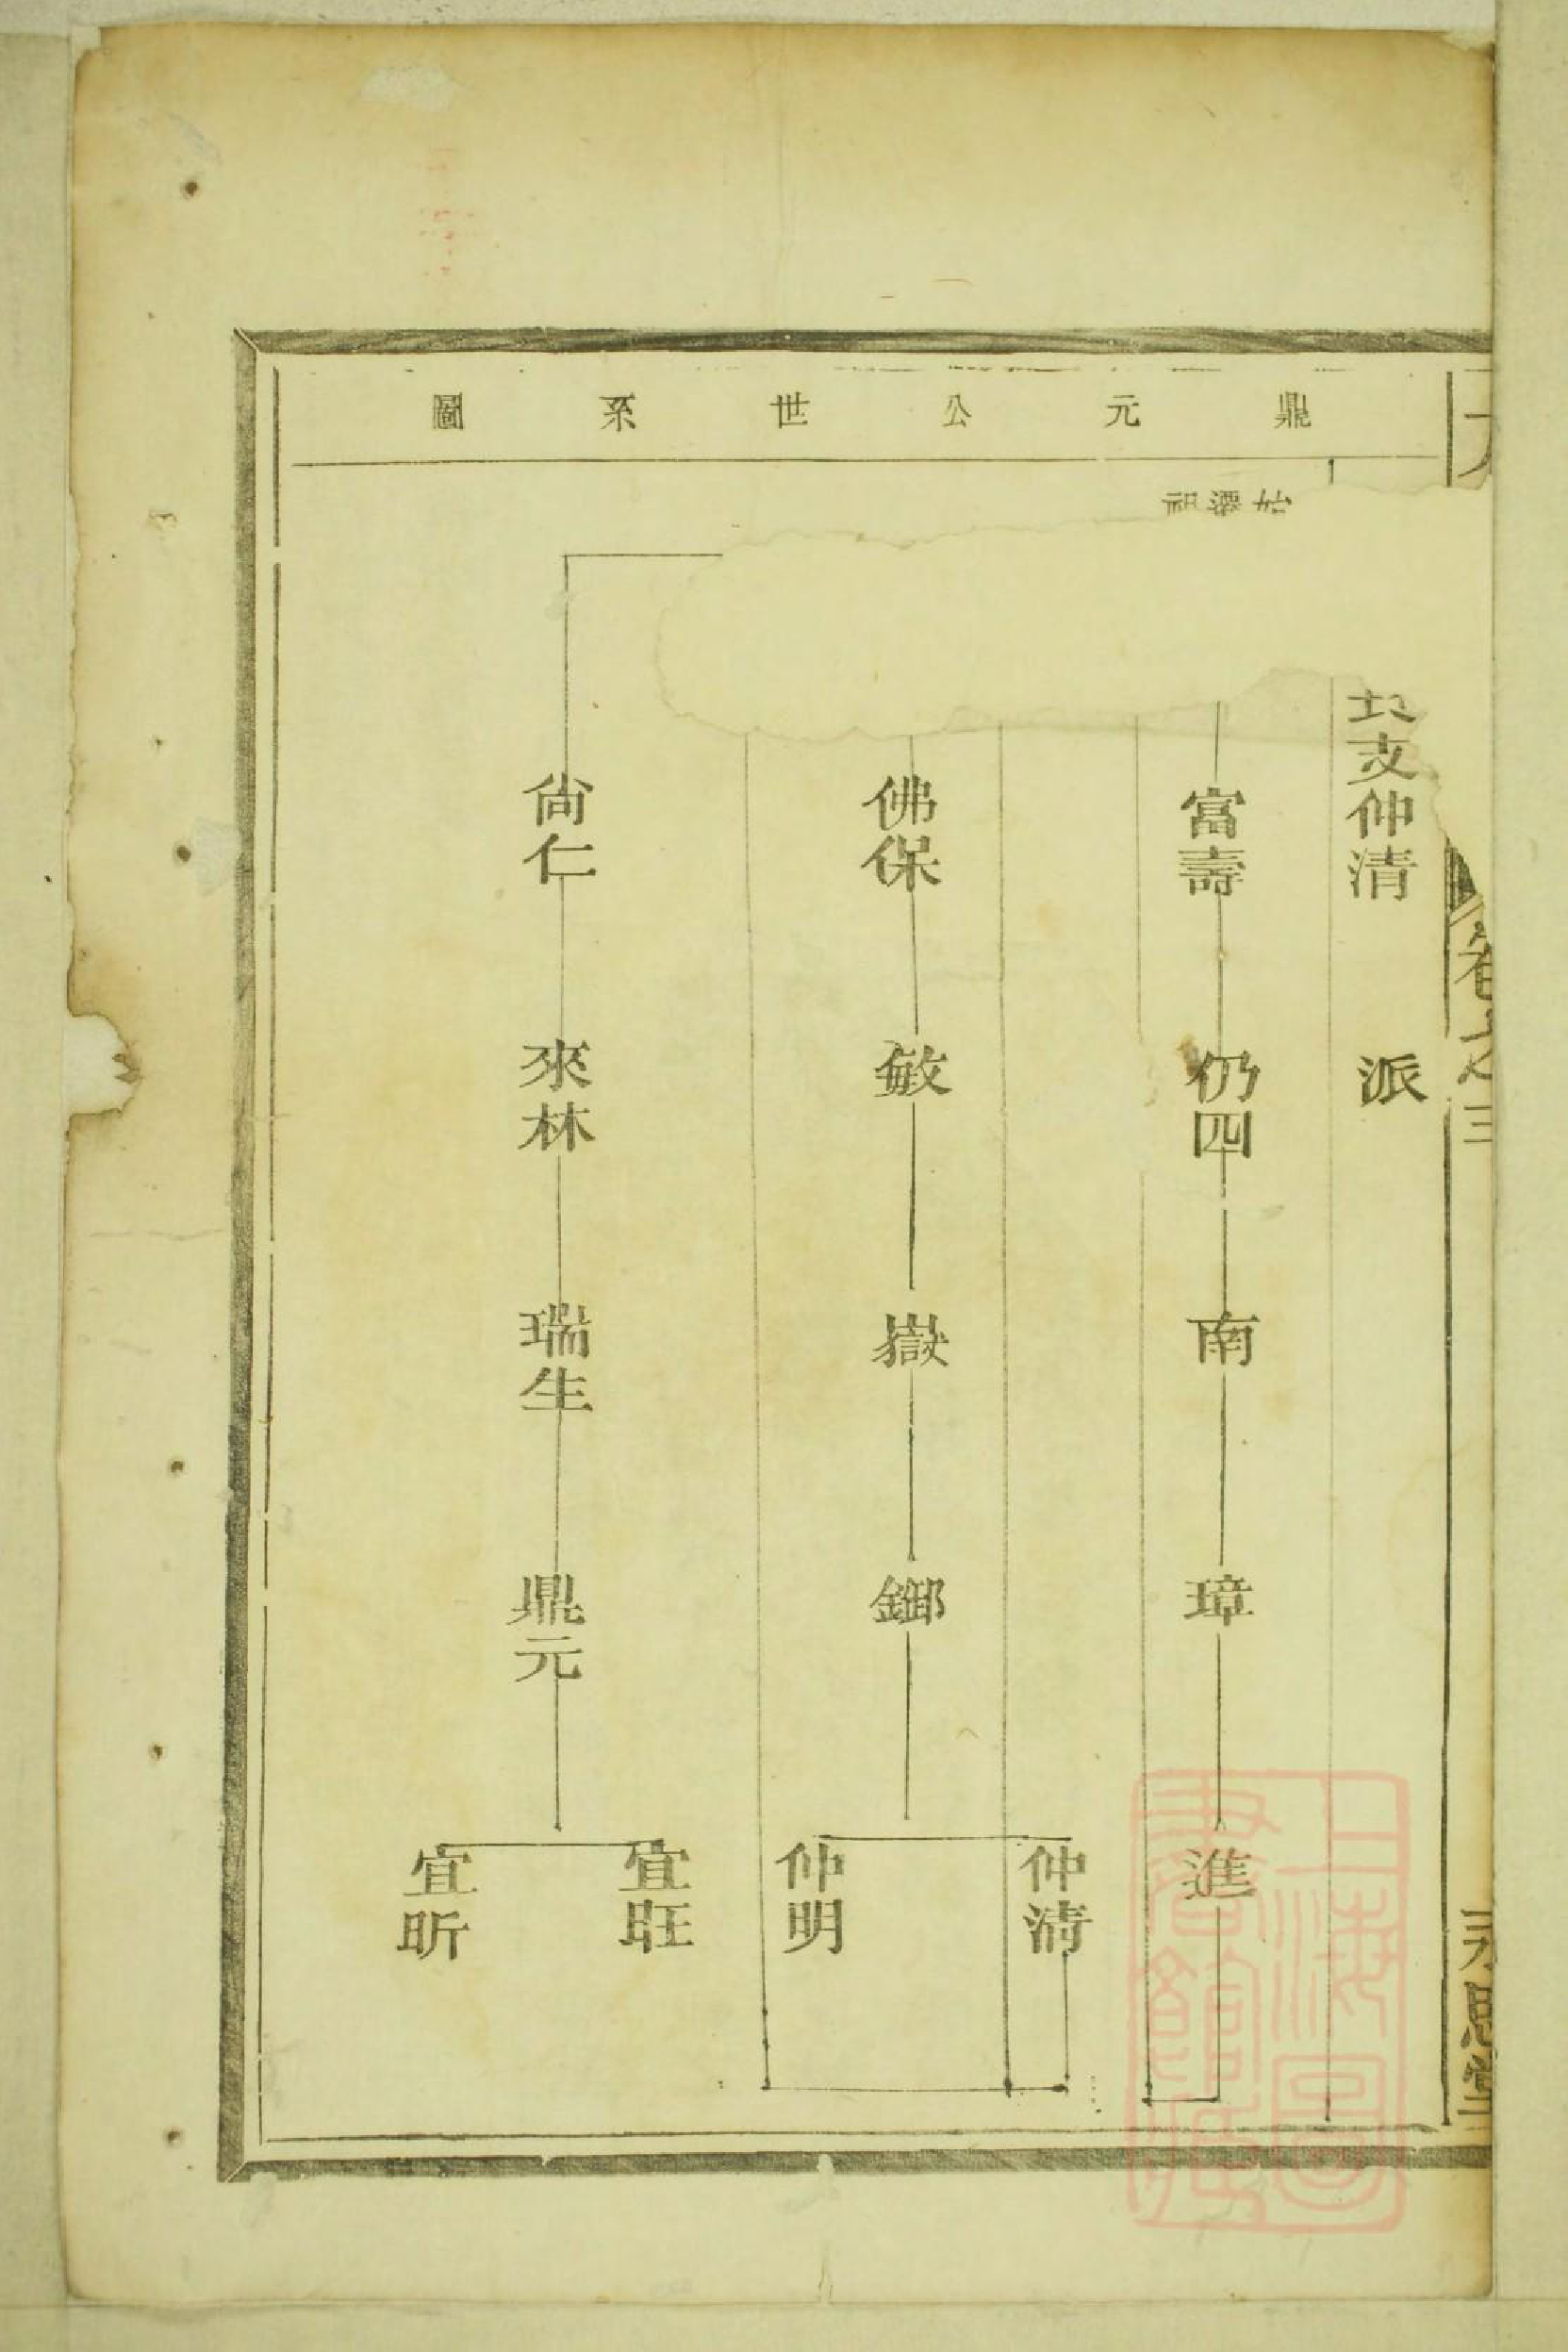 鼎元公世系圖
始遷祖
支仲清派
富壽
仍四
南
璋
進
佛保
敏
嶽
仲清
仲明
尙仁
來林
瑞生
鼎元
宜旺
宜昕
卷之三
永思堂
上海圖書館藏